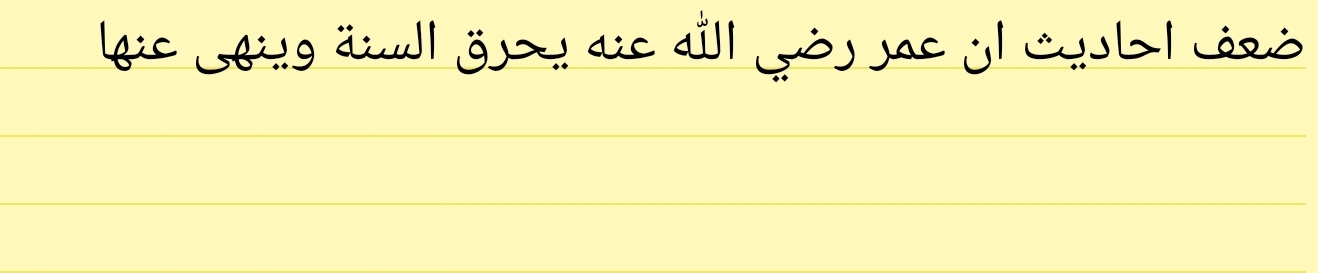 ضعف احاديث ان عمر رضي الله عنه يحرق السنة وينهى عنها